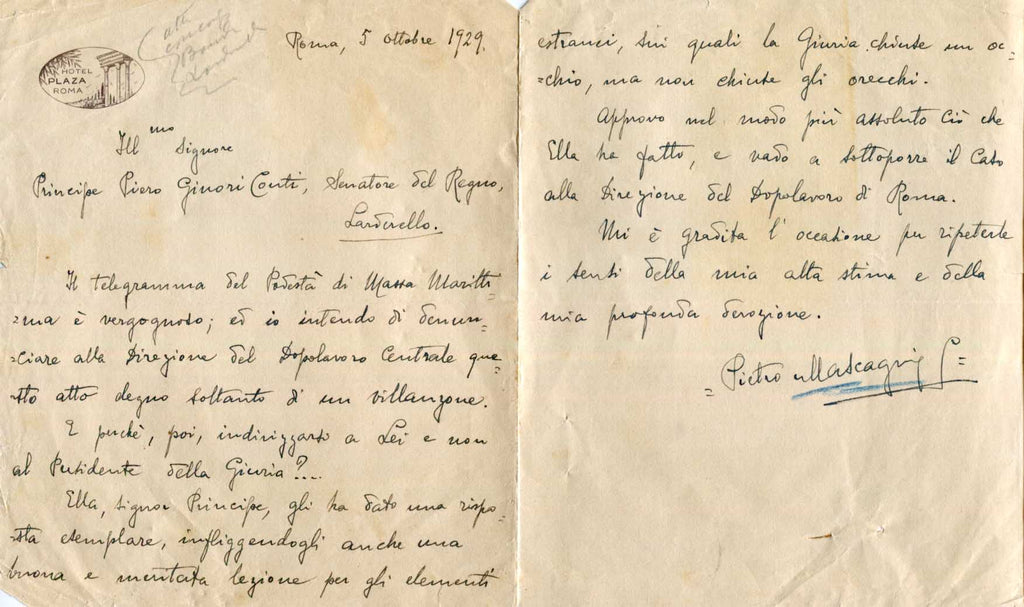 HOTEL
PLAZA
ROMA
Roma, 5 ottobre 1929.
Ill mo Signore
Principe Piero Ginori Conti, Senatore del Regno,
Larderello.
Il telegramma del Podestà di Massa Maritti=
=ma è vergognoso; ed io intendo di denun=
=ciare alla Direzione del Dopolavoro Centrale que=
=sto atto degno soltanto di un villanzone.
E perchè, poi, indirizzarsi a Lei e non
al Presidente della Giuria?...
Ella, signor Principe, gli ha dato una rispo=
=sta esemplare, infliggendogli anche una
buona e meritata lezione per gli elementi
estranei, sui quali la Giuria chiuse un oc=
=chio, ma non chiuse gli orecchi.
Approvo nel modo più assoluto ciò che
Ella ha fatto, e vado a sottoporre il caso
alla Direzione del Dopolavoro di Roma.
Mi è gradita l'occasione per ripeterle
i sensi della mia alta stima e della
mia profonda devozione.
=Pietro Mascagni=